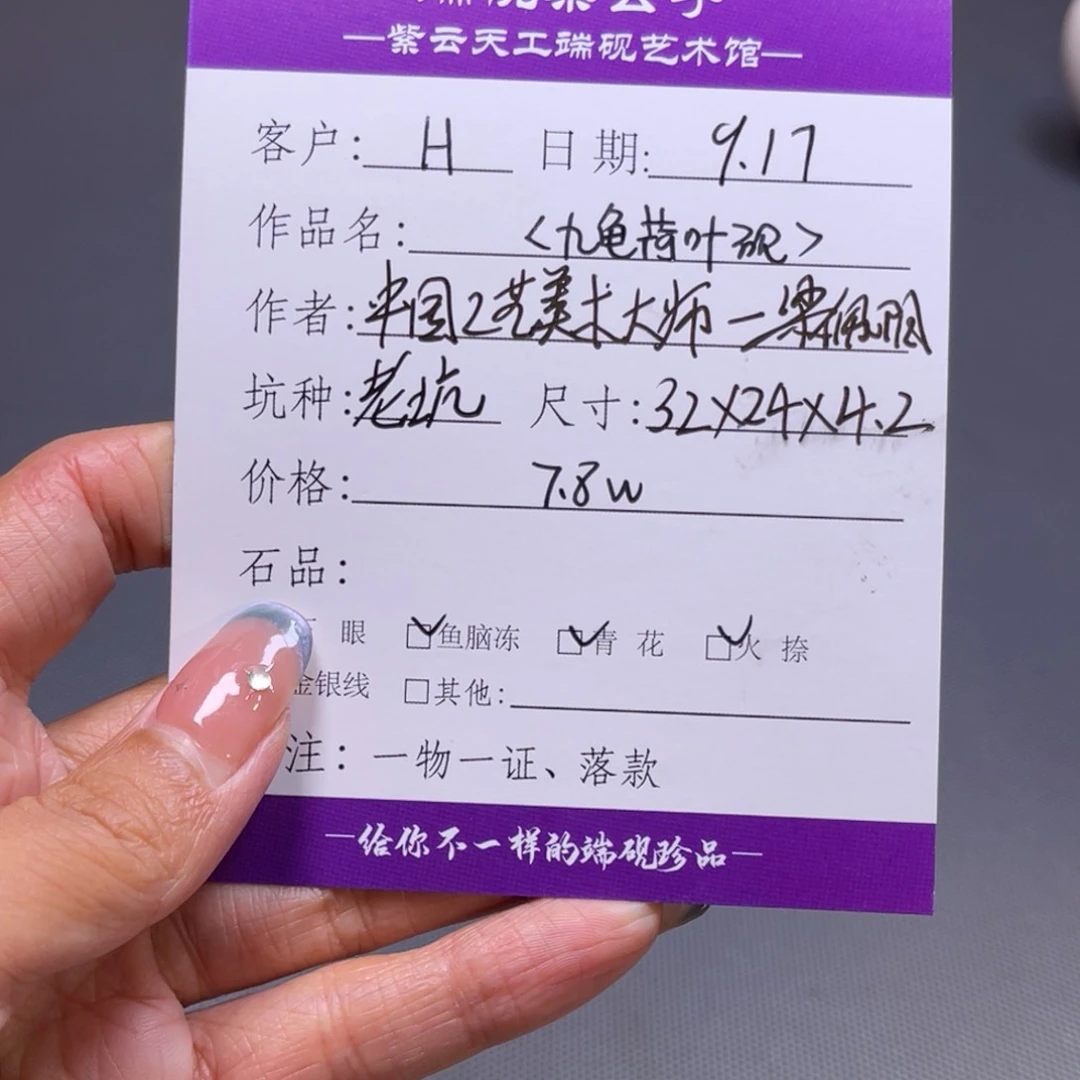 —紫云天工端砚艺术馆—
客户: H 日期: 9.17
作品名: <九龟荷叶砚>
作者: 中国工艺美术大师—梁佩阳
坑种: 老坑 尺寸: 32X24X4.2
价格: 7.8w
石品:
眼 ☑鱼脑冻 ☑青花 ☑火捺
金银线 □其他:
注: 一物一证、落款
—给你不一样的端砚珍品—